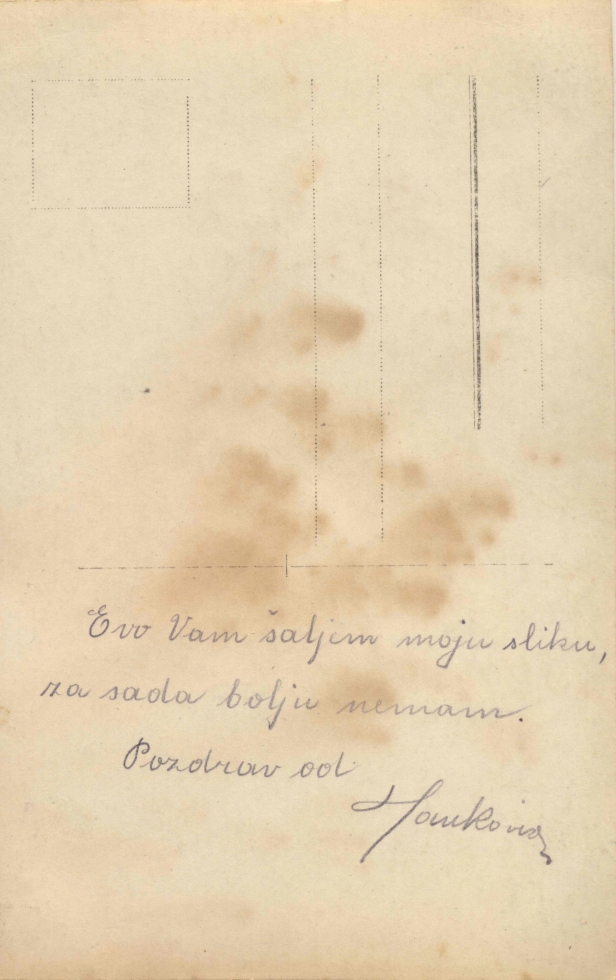 Evo Vam šaljem moju sliku,
za sada bolju nemam.
Pozdrav od